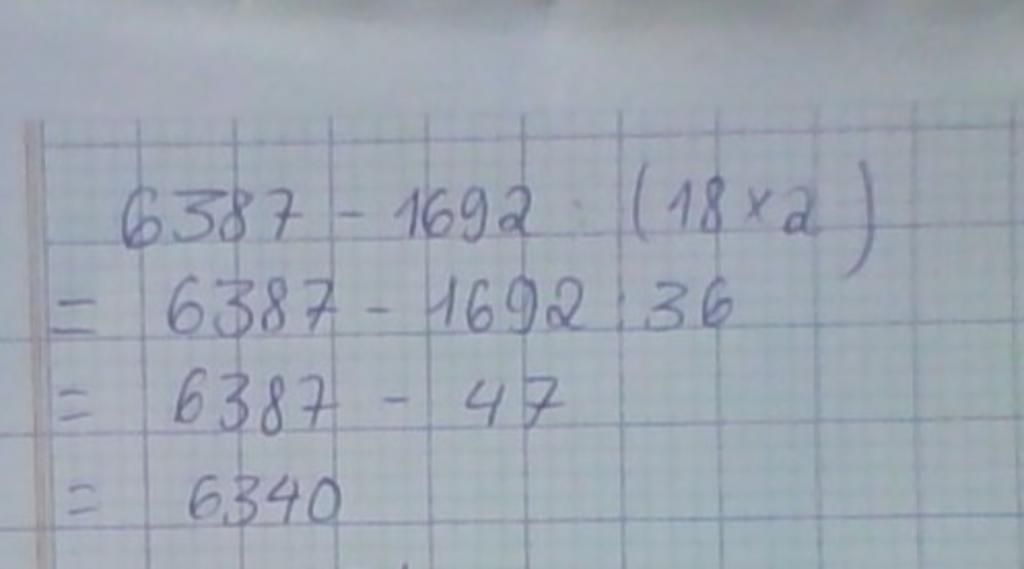 6387 - 1692 : (18 × 2)
= 6387 - 1692 : 36
= 6387 - 47
= 6340